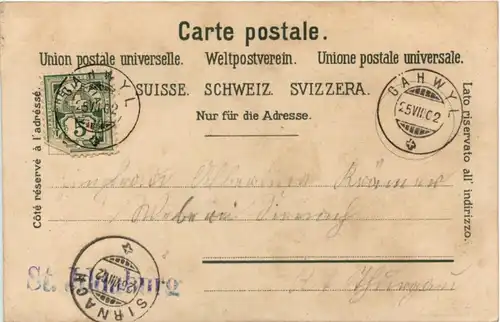 Carte postale.
Union postale universelle. Weltpostverein. Unione postale universale.
SUISSE. SCHWEIZ. SVIZZERA.
Nur für die Adresse.
Côté réservé à l'adresse.
Lato riservato all' indirizzo.
GAHWYL
25 VII 02
GAHWYL
25 VII 02
5
Krämer
Weberei Sirnach
Kt. Thurgau
SIRNACH
VII 02
St.